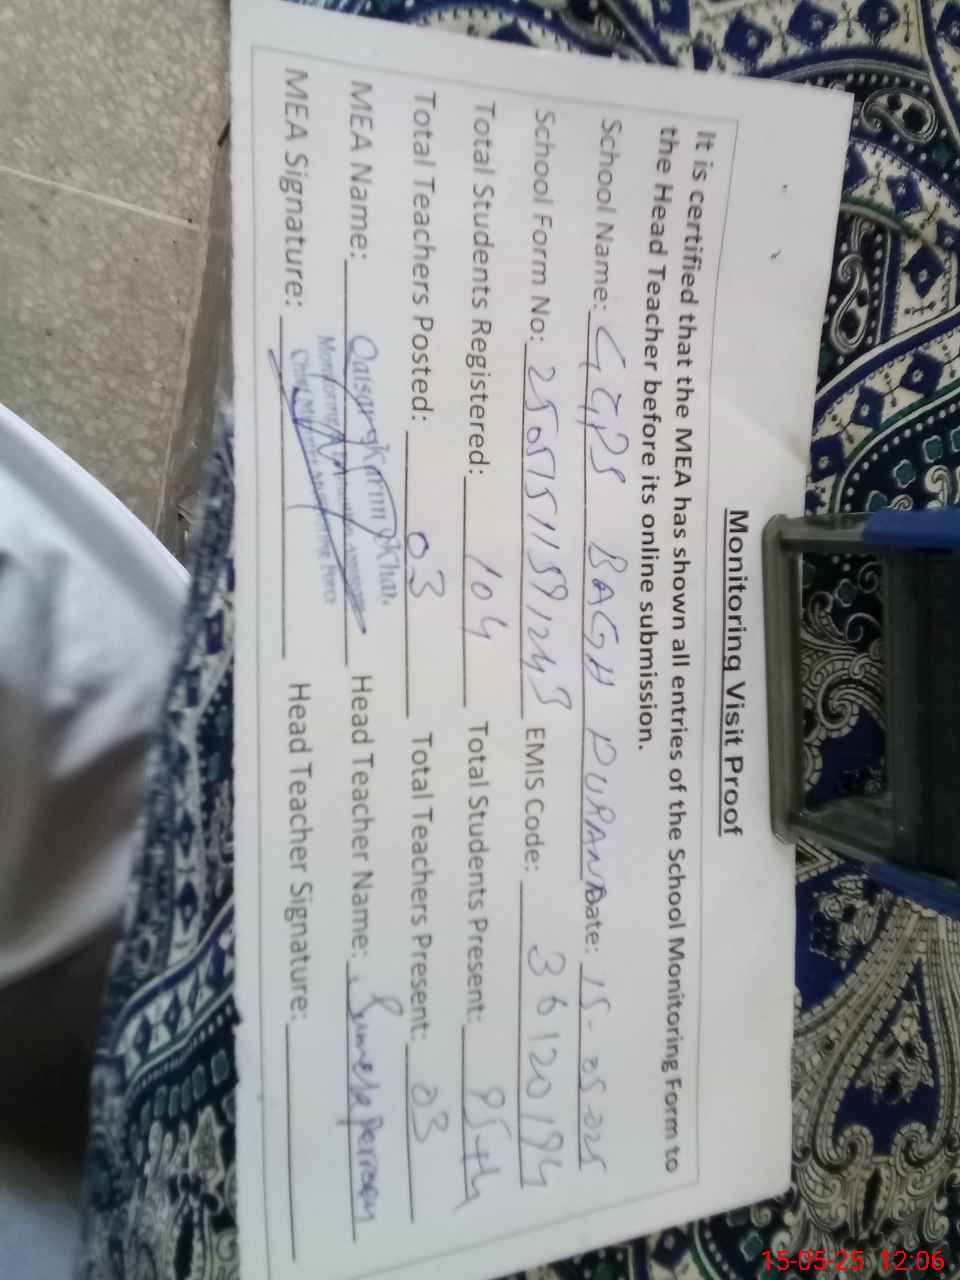 Monitoring Visit Proof
It is certified that the MEA has shown all entries of the School Monitoring Form to
the Head Teacher before its online submission.
School Name: GGPS BAGH PURAN Date: 15-05-2025
School Form No: EMIS Code: 36120194
Total Students Registered: 104 Total Students Present:
Total Teachers Posted: 03 Total Teachers Present: 03
MEA Name: Qaisar Karim Khan Head Teacher Name: Parveen
MEA Signature: Head Teacher Signature:
15-05-25 12:06